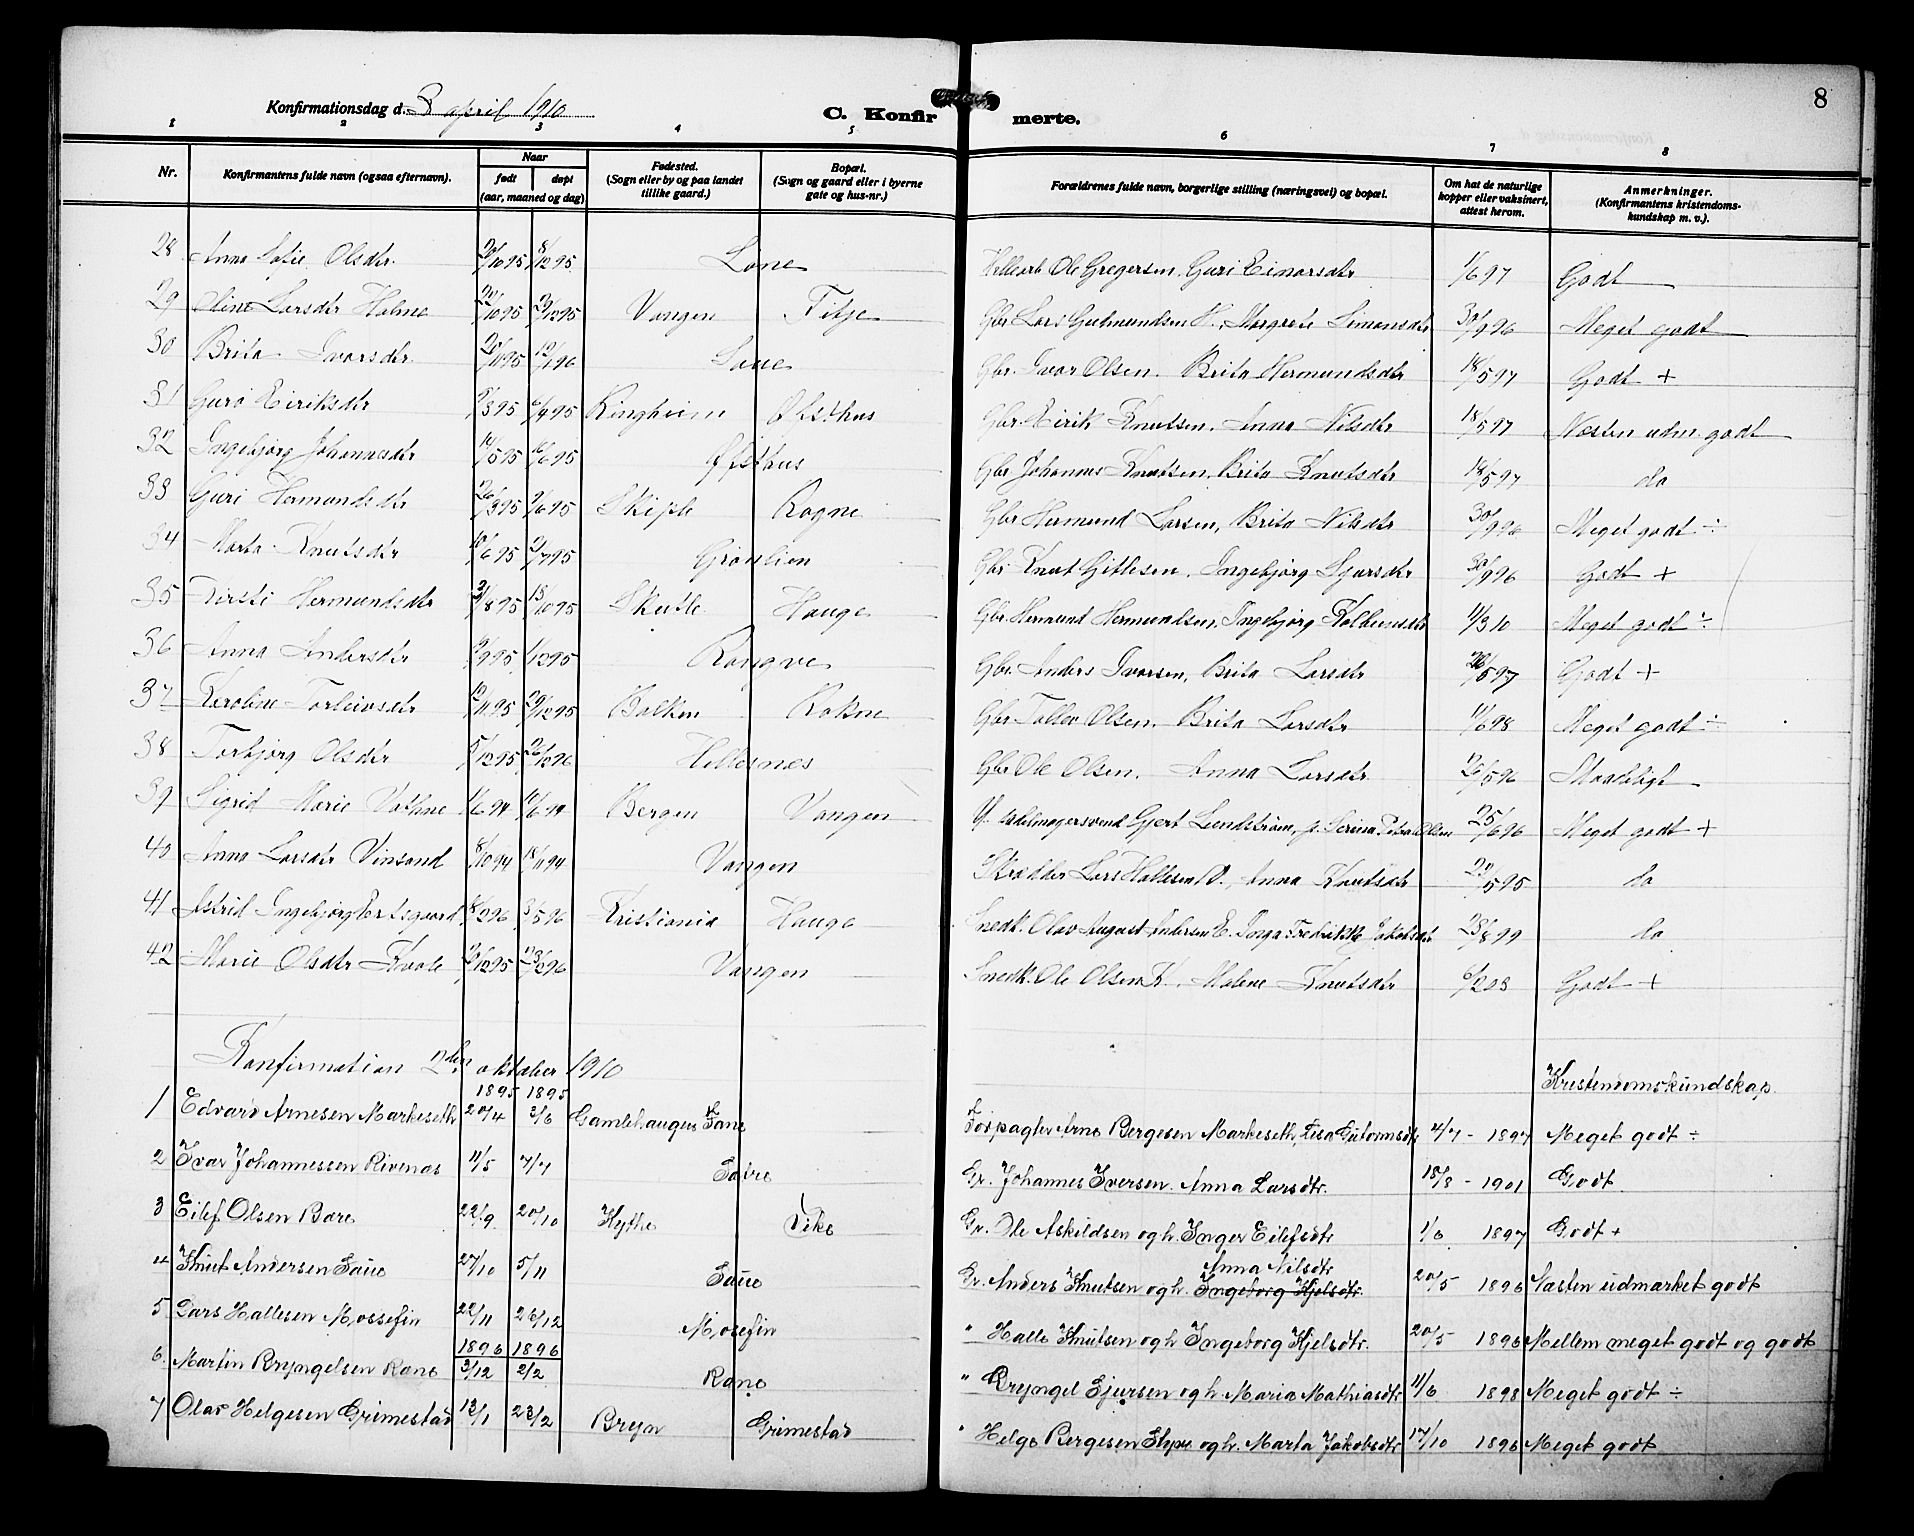 8
Konfirmationsdag d. 3 april 1910
C. Konfirmerte.
1 2 3 4 5 6 7 8
Nr. Konfirmantens fulde navn (ogsaa efternavn). Naar født døpt (aar, maaned og dag) Fødested. (Sogn eller by og paa landet tillike gaard.) Bopæl. (Sogn og gaard eller i byerne gate og hus-nr.) Forældrenes fulde navn, borgerlige stilling (næringsvei) og bopæl. Om hat de naturlige kopper eller vaksinert, attest herom. Anmerkninger. (Konfirmantens kristendomskundskap m. v.).
28 Anna Sofie Olsdtr. /10 95 8/12 95 Lone Ole Gregersen, Guri Einarsdtr 1/6 97 Godt
29 Oline Larsdtr Holme /10 95 /12 95 Vangen Titje Gbr Lars Gudmundsen H., Margrete Simonsdtr 30/9 96 Meget godt
30 Brita Ivarsdtr. /11 95 12/1 96 Lone Gbr. Ivar Olsen. Brita Hermundsdtr 18/5 97 Godt +
31 Guro Eiriksdtr /3 95 /4 95 Ringheim Øfsthus Gbr. Eirik Knutsen, Anna Nilsdtr 18/5 97 Næsten udm. godt
32 Ingebjørg Johannesdtr /5 95 /6 95 Øfsthus Gbr Johannes Knutsen, Brita Knutsdtr 18/5 97 do
33 Guri Hermundsdtr 26/3 95 /6 95 Skiple Rogne Gbr Hermund Larsen, Brita Nilsdtr 30/9 96 Meget godt ÷
34 Marta Knutsdtr 10/6 95 /7 95 Grønlien Gbr Knut Gitlesen, Ingebjørg Sjursdtr 30/9 96 Godt +
35 Kirsti Hermundsdtr /8 95 13/10 95 Skutle Hauge Gbr. Hermund Hermundsen, Ingebjørg Kolbeinsdtr 11/3 10 Meget godt ÷
36 Anna Andersdtr /9 95 1/12 95 Rongve Gbr. Anders Ivarsen, Brita Larsdtr /5 97 Godt +
37 Karoline Torleivsdtr /11 95 29/12 95 Bolken Rokne Gbr Tollev Olsen. Brita Larsdtr 11/6 98 Meget godt ÷
38 Torbjørg Olsdtr 5/12 95 26/12 96 Hellesnes Gbr Ole Olsen. Anna Larsdtr. 26/5 96 Maadeligt
39 Sigrid Marie Vathne 1/6 94 /6 94 Bergen Vangen Gjert Lundstrøm, p. Serina Petra Olsen 25/6 96 Meget godt +
40 Anna Larsdtr Vinsand 8/10 94 18/11 94 Vangen Skrædder Lars Hallesen V. Anna Knutsdtr 20/5 95 do
41 Astrid Ingebjørg Ertsgaard 18/2 96 3/5 96 Kristiania Hauge Snedk. Olav August Andersen E. Inga Fredrikke Jakobsdtr 23/8 99 do
42 Marie Olsdtr Kvale /12 95 23/2 96 Vangen Snedk. Ole Olsen K., Malene Knutsdtr 6/2 03 Godt +
Konfirmation 2den oktober 1910 Kristendomskundskap.
1895 1895
1 Edvard Arnesen Markeseth 20/4 3/6 Gamlehaugen Fane Forpagter Arne Bergesen Markeseth, Lisa Gutormsdtr 4/7 - 1897 Meget godt ÷
2 Ivar Johannessen Rivenas 11/5 7/7 Sobre Gr. Johannes Iversen. Anna Larsdtr. 18/8 - 1901 Godt.
3 Eilef Olsen Bore 22/9 20/10 Hythe Vike Gr. Ole Askildsen og h. Inger Eilefsdtr 1/6 1897 Godt +
Anna Nilsdtr
4 Knut Andersen Saue 27/10 5/11 Saue Gr. Anders Knutsen og h. Ingeborg Kjelsdtr. 20/5 1896 Næsten udmærket godt
5 Lars Hallesen Mossefin 22/11 26/12 Mosefin " Halle Knutsen og h. Ingeborg Kjelsdtr. 20/5 1896 Mellem meget godt og godt
1896 1896
6. Martin Bryngelsen Rane 3/12 2/2 Rane " Bryngel Sjursen og h. Maria Mathiasdtr 11/6 1898 Meget godt ÷
7 Olav Helgesen Grimestad 13/1 23/2 Bryn Grimestad " Helge Bergesen og h. Marta Jakobsdtr 17/10 1896 Meget godt